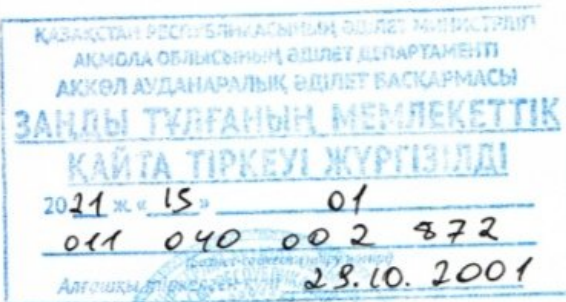 ҚАЗАҚСТАН РЕСПУБЛИКАСЫНЫҢ ӘДІЛЕТ МИНИСТРЛІГІ
АҚМОЛА ОБЛЫСЫНЫҢ ӘДІЛЕТ ДЕПАРТАМЕНТІ
АҚКӨЛ АУДАНАРАЛЫҚ ӘДІЛЕТ БАСҚАРМАСЫ
ЗАҢДЫ ТҰЛҒАНЫҢ МЕМЛЕКЕТТІК
ҚАЙТА ТІРКЕУІ ЖҮРГІЗІЛДІ
2021 ж. « 15 » 01
011 040 002 872
Алғашқы 29.10.2001